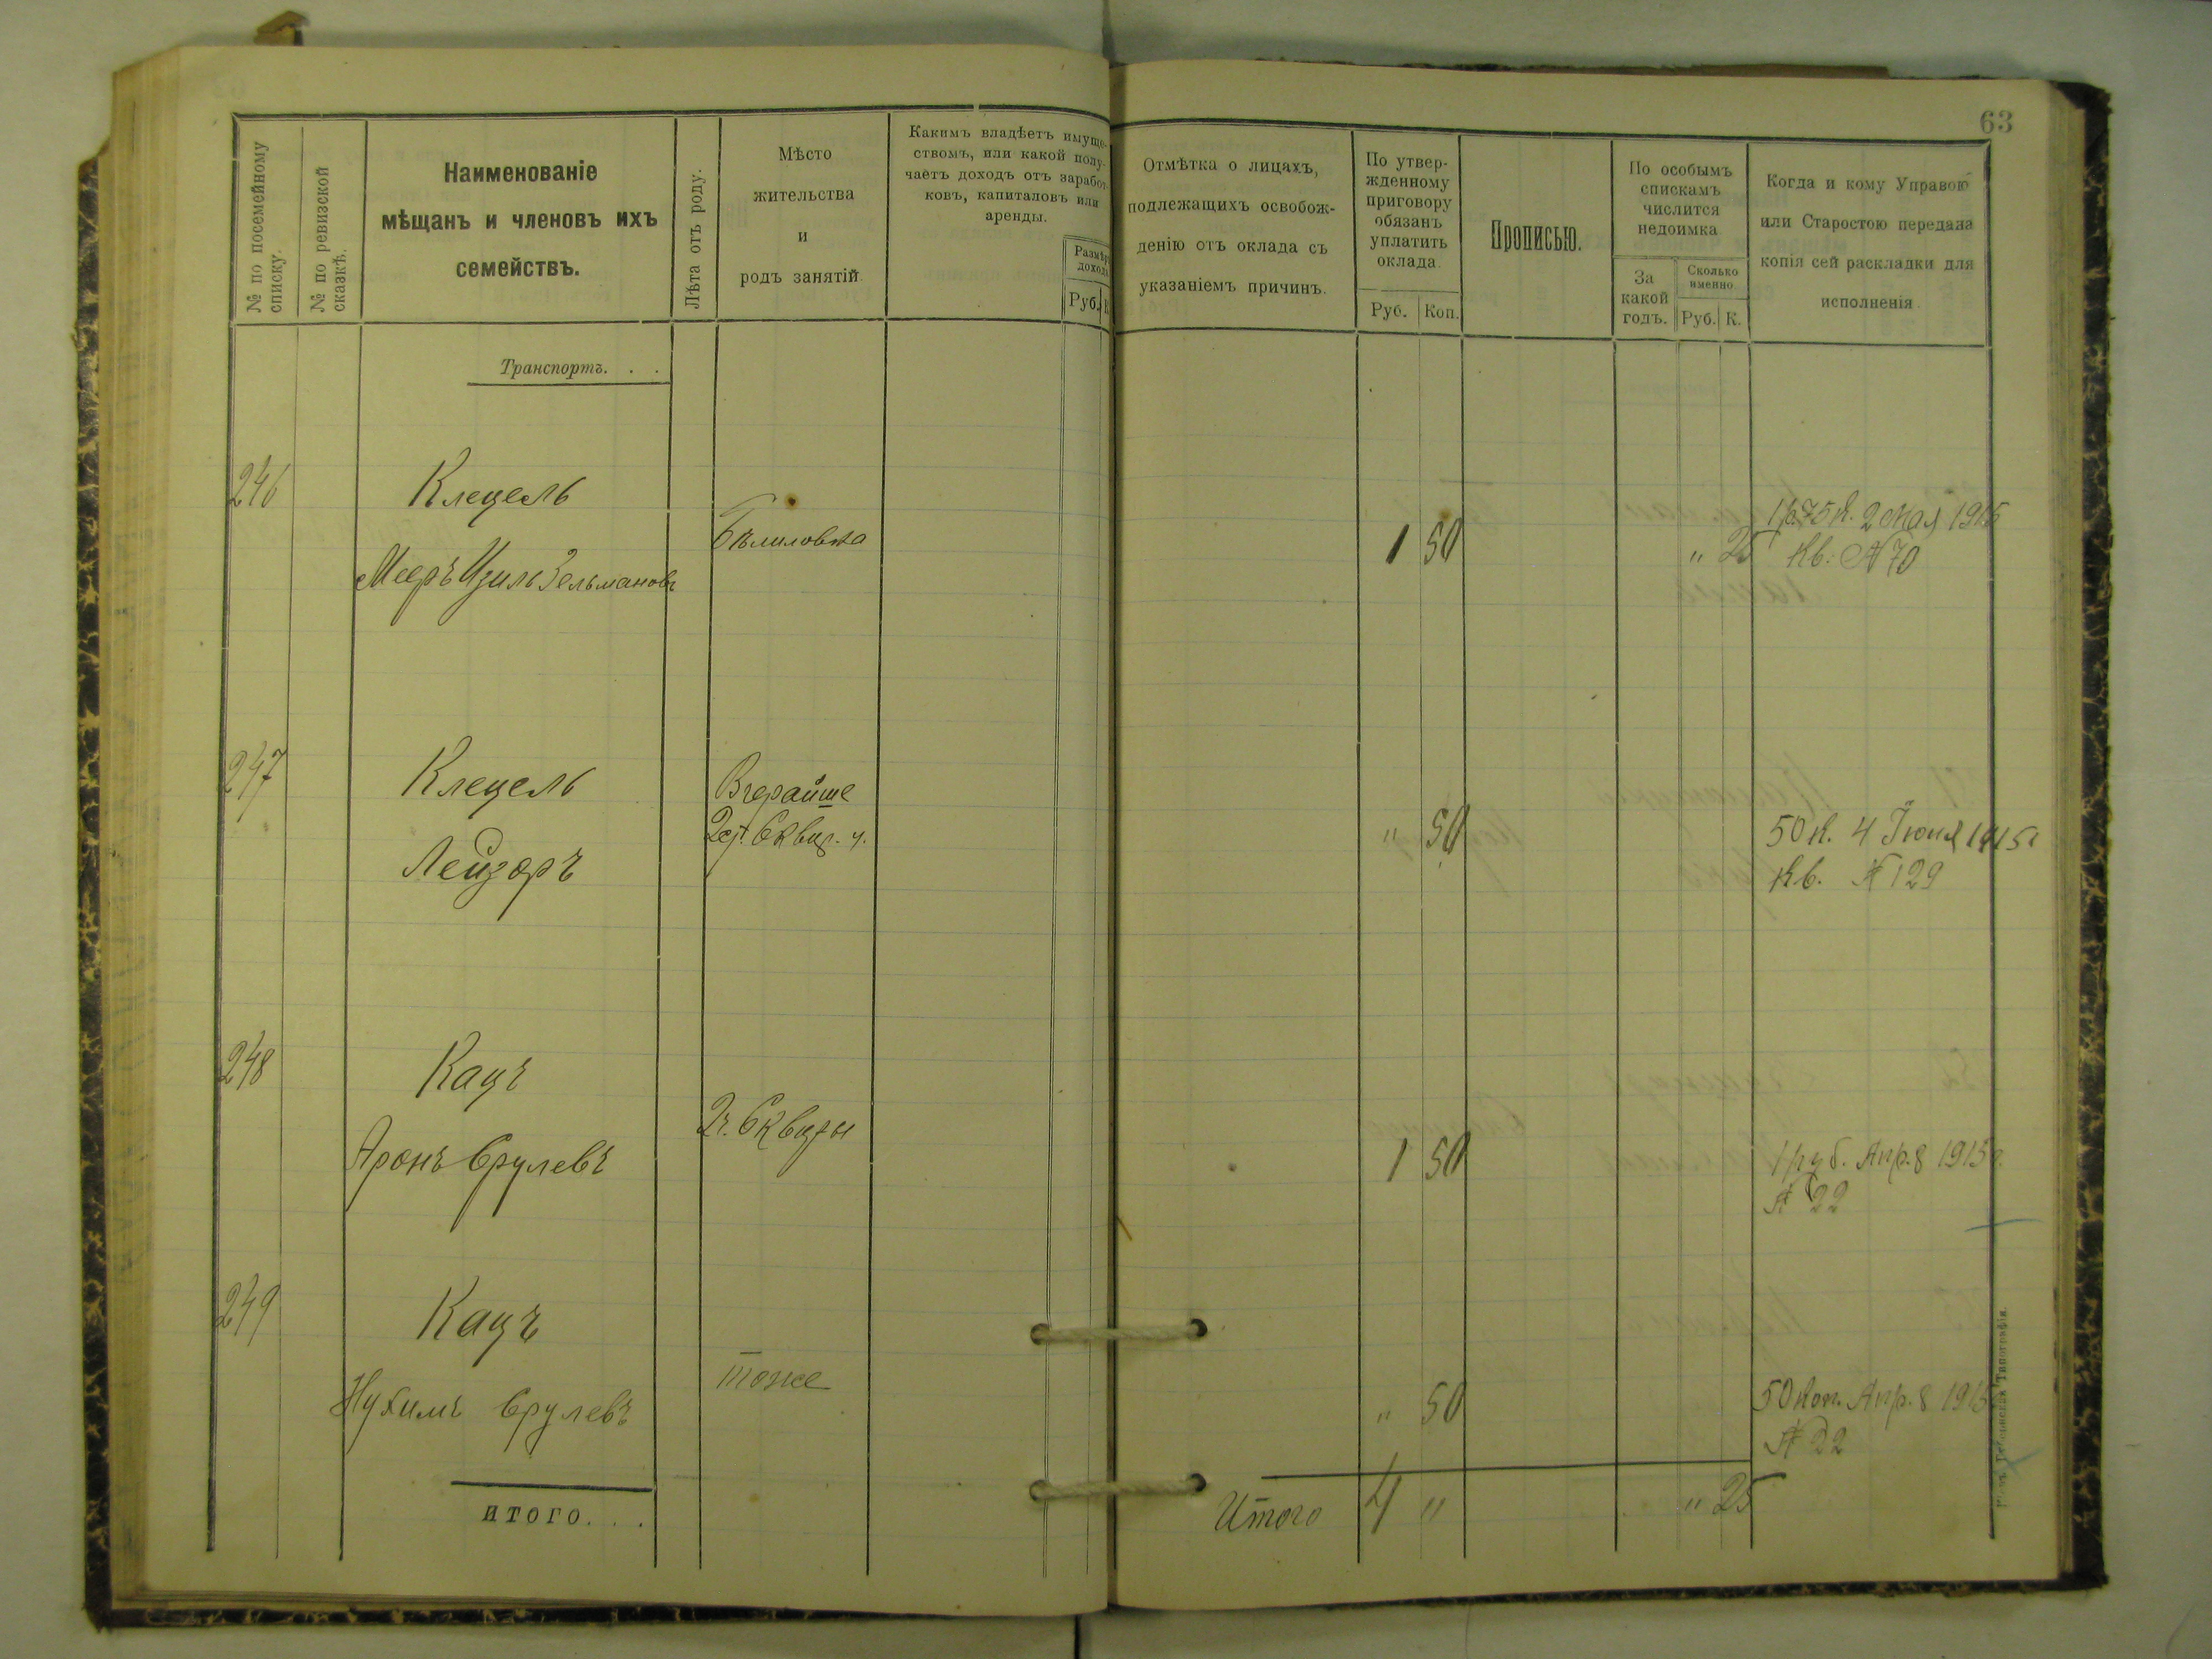 63
№ по посемейному
списку.
№ по ревизской
сказкѣ.
Наименованіе
мѣщанъ и членовъ ихъ
семействъ.
Лѣта отъ роду.
Мѣсто
жительства
и
родъ занятій.
Какимъ владѣетъ имуще-
ствомъ, или какой полу-
чаетъ доходъ отъ заработ-
ковъ, капиталовъ или
аренды.
Размѣръ
дохода
Руб. К.
Отмѣтка о лицахъ,
подлежащихъ освобож-
денію отъ оклада съ
указаніемъ причинъ.
По утвер-
жденному
приговору
обязанъ
уплатить
оклада.
Руб. Коп.
Прописью.
По особымъ
спискамъ
числится
недоимка
За
какой
годъ.
Сколько
именно
Руб. К.
Когда и кому Управою
или Старостою передана
копія сей раскладки для
исполненія
Транспортъ. . .
246 Клецель
Мееръ Изиль Зельмановъ
Бѣлиловка
1 50
" 25
1 р. 75 к. 2 Мая 1915
Кв: № 70
247 Клецель
Лейзоръ
" 50
50 к. 4 Іюня 1915 г
Кв. № 129
248 Кацъ
Аронъ Срулевъ
2 ч. Сквиры
1 50
1 руб. Апр. 8 1915 г.
№ 22
249 Кацъ
Нухимъ Срулевъ
тоже
" 50
50 коп. Апр. 8 1915
№ 22
итого. . .
Итого 4 " " 25